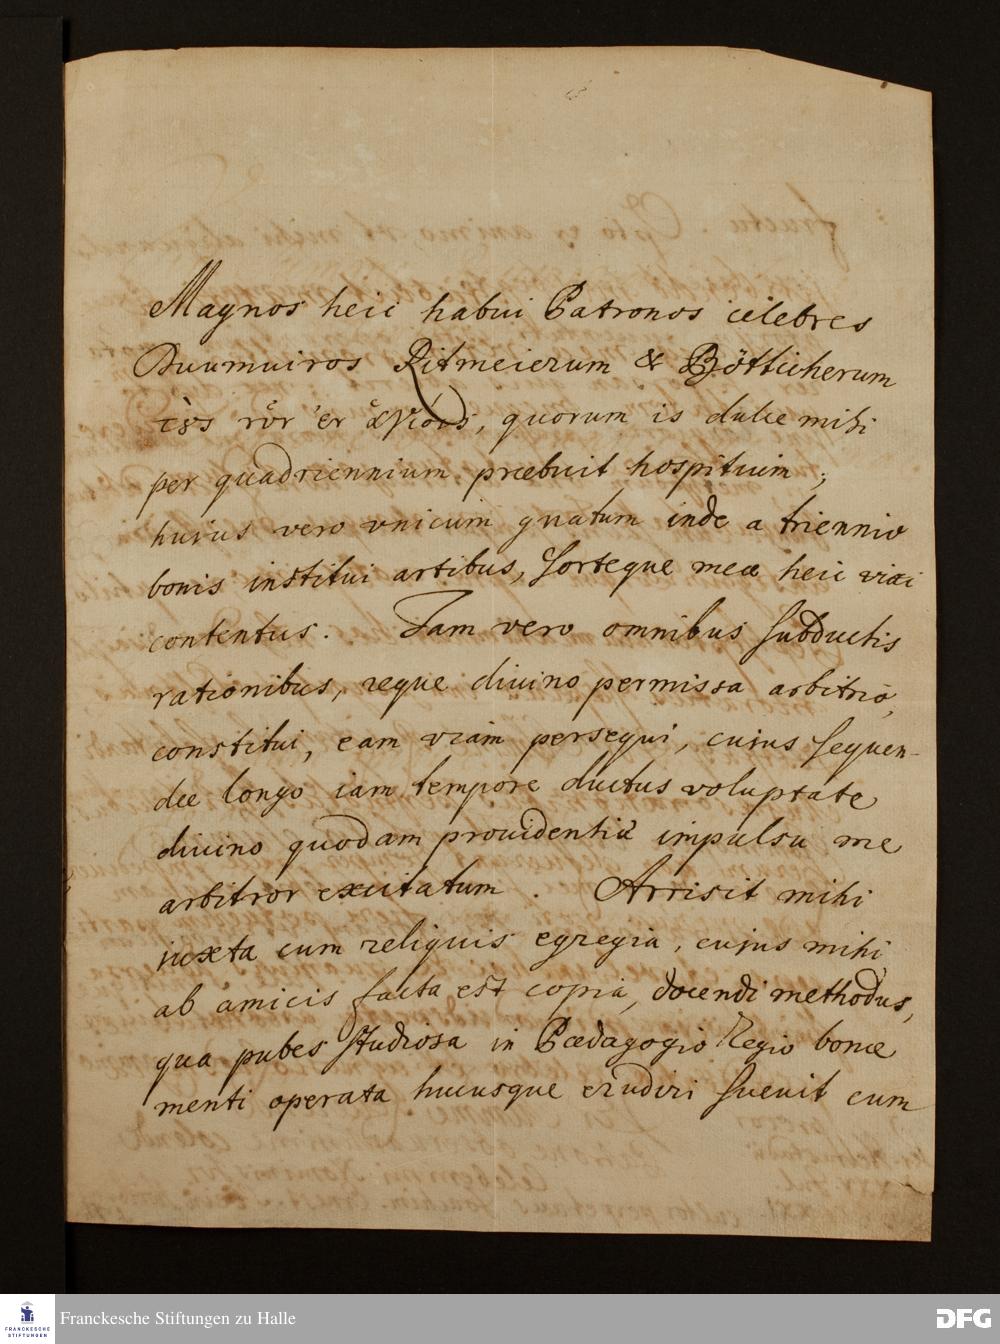 Magnos heic habui Patronos celebres
Duumuiros Ritmeierum & Bötticherum
quorum is dulce mihi
per quadriennium præbuit hospitium;
huius vero vnicum gnatum inde a triennio
bonis institui artibus, sorteque meæ heic vixi
contentus. Iam vero omnibus subductis
rationibus, reque diuino permissa arbitrio,
constitui, eam viam persequi, cuius sequen-
dæ longo iam tempore ductus voluptate
diuino quodam prouidentiæ impulsu me
arbitror excitatum. Arrisit mihi
iuxta cum reliquis egregia, cujus mihi
ab amicis facta est copia, docendi methodus,
qua pubes studiosa in Pædagogio Regio bonæ
menti operata hucusque erudiri sueuit cum
FRANCKESCHE
STIFTUNGEN
Franckesche Stiftungen zu Halle
DFG